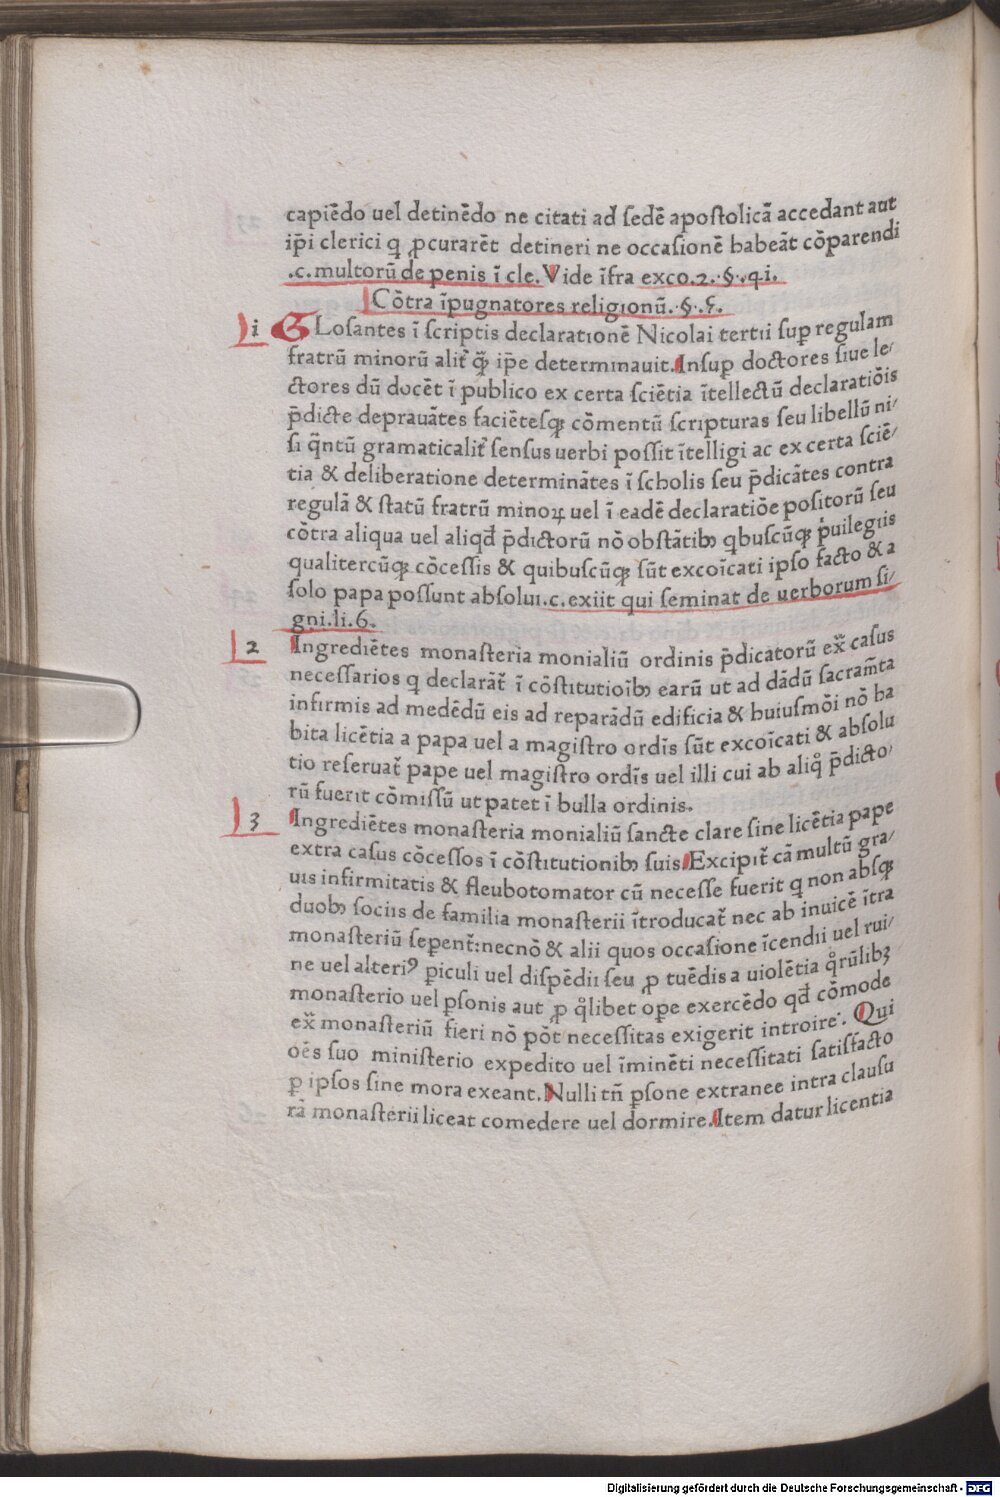 capiēdo uel detinēdo ne citati ad ſedē apoſtolicā accedant aut
ip̄i clerici q ꝓcurarēt detineri ne occaſionē habeāt cōparendi
.c.multorū de penis ī cle.Vide īfra exco.2.§.qi.
Cōtra īpugnatores religionū.§.5.
1 GLoſantes ī ſcriptis declarationē Nicolai tertii ſuꝑ regulam
fratrū minorū alit̉ q̄ꝫ ip̄e determinauit.Inſuꝑ doctores ſiue le/
ctores dū docēt ī publico ex certa ſciētia ītellectū declaratiōis
p̄dicte deprauātes faciēteſqꝫ cōmentū ſcripturas ſeu libellū ni/
ſi q̄ntū gramaticalit̉ ſenſus uerbi poſſit ītelligi ac ex certa ſciē/
tia & deliberatione determinātes ī ſcholis ſeu p̄dicātes contra
regulā & ſtatū fratrū minoꝝ uel ī eadē declaratiōe poſitorū ſeu
cōtra aliqua uel aliqd̄ p̄dictorū nō obſtātibꝫ qbuſcūqꝫ p̉uilegiis
qualitercūqꝫ cōceſſis & quibuſcūqꝫ ſūt excoīcati ipſo facto & a
ſolo papa poſſunt abſolui.c.exiit qui ſeminat de uerborum ſi/
gni.li.6.
2 Ingrediētes monaſteria monialiū ordinis p̄dicatorū ex̄ caſus
neceſſarios q declarāt̉ ī cōſtitutioībꝫ earū ut ad dādū ſacram̄ta
infirmis ad medēdū eis ad reparādū edificia & huiuſmōi nō ha
bita licētia a papa uel a magiſtro ordīs ſūt excoīcati & abſolu
tio reſeruat̉ pape uel magiſtro ordīs uel illi cui ab aliq̊ p̄dicto/
rū fuerit cōmiſſū ut patet ī bulla ordinis.
3 Ingrediētes monaſteria monialiū ſancte clare ſine licētia pape
extra caſus cōceſſos ī cōſtitutionibꝫ ſuis.Excipit̉ cā multū gra/
uis infirmitatis & fleubotomator cū neceſſe fuerit q non abſqꝫ
duobꝫ ſociis de familia monaſterii ītroducat̉ nec ab inuicē ītra
monaſteriū ſeꝑent̉:necnō & alii quos occaſione īcendii uel rui/
ne uel alteriꝰ ꝑiculi uel diſpēdii ſeu ꝓ tuēdis a uiolētia q̊rūlibꝫ
monaſterio uel ꝑſonis aut ꝓ q̊libet oꝑe exercēdo qd̄ cōmode
ex̄ monaſteriū fieri nō pōt neceſſitas exigerit introire. Qui
oēs ſuo miniſterio expedito uel īminēti neceſſitati ſatiſfacto
ꝑ ipſos ſine mora exeant.Nulli tn̄ ꝑſone extranee intra clauſu
rā monaſterii liceat comedere uel dormire.Item datur licentia
Digitalisierung gefördert durch die Deutsche Forschungsgemeinschaft - DFG